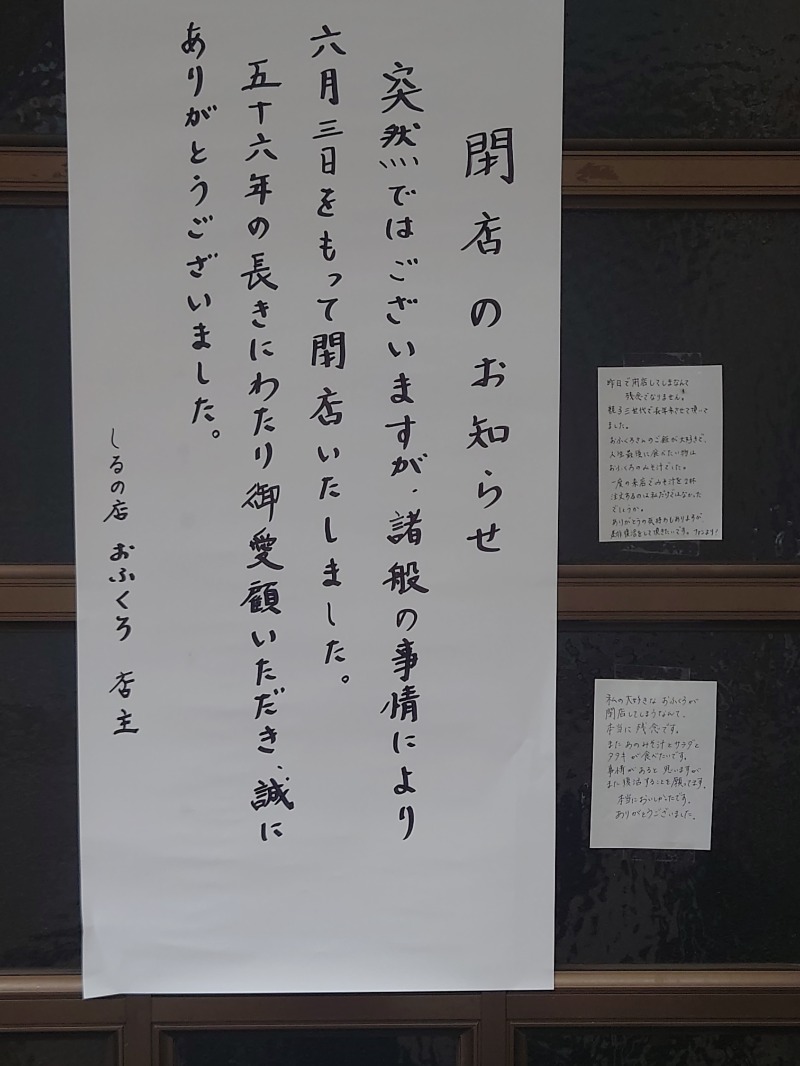 閉店のお知らせ
突然ではございますが、諸般の事情により
六月三日をもって閉店いたしました。
五十六年の長きにわたり御愛顧いただき、誠に
ありがとうございました。
しるの店 おふくろ 店主
昨日で閉店してしまなんて
残念でなりません。
親子三世代で長年
ました。
おふくろさんのご飯が大好きで、
人生最後に食べたい物は
おふくろのみそ汁でした。
一度の来店でみそ汁を2杯
注文するのは私だけではなかった
でしょうか。
ありがとうの気持ちもありますが
復活をして頂きたいです。
私の大好きな おふくろが
閉店してしまうなんて、
本当に残念です。
またあのみそ汁とサラダと
が食べたいです。
事情があると思いますが
また復活することを願ってます。
本当においしかったです。
ありがとうございました。